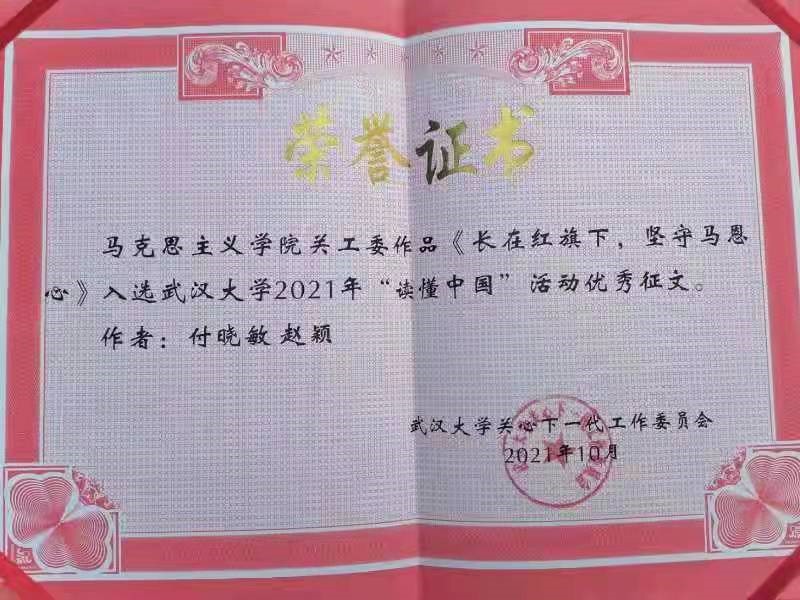 荣誉证书
马克思主义学院关工委作品《长在红旗下，坚守马恩
心》入选武汉大学2021年“读懂中国”活动优秀征文。
作者：付晓敏 赵颖
武汉大学关心下一代工作委员会
2021年10月